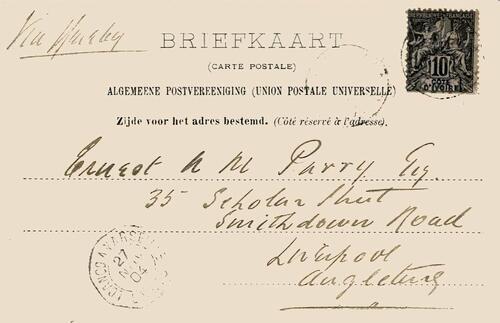 Via
BRIEFKAART
(CARTE POSTALE)
ALGEMEENE POSTVEREENIGING (UNION POSTALE UNIVERSELLE)
Zijde voor het adres bestemd. (Côté réservé à l'adresse).
REPUBLIQUE FRANÇAISE
10
COTE
D'IVOIRE
Ernest A M Parry Esq.
35 Scholar Street
Smithdown Road
Liverpool
Angleterre
27
04